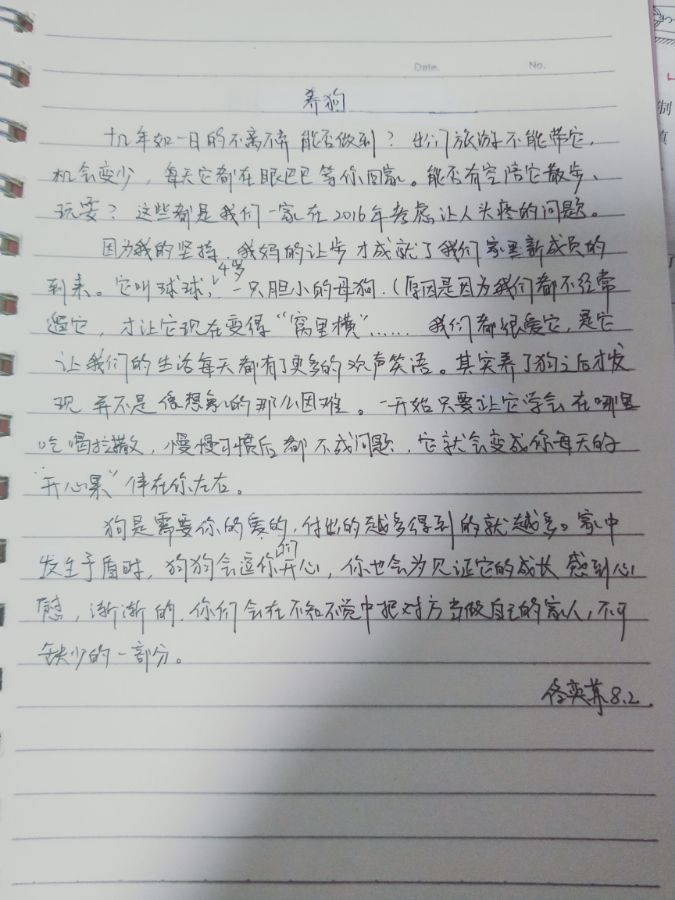 Date.
No.
养狗
十几年如一日的不离不弃能否做到？出门旅游不能带它，
机会变少，每天它都在眼巴巴等你回家。能否有空陪它散步、
玩耍？这些都是我们一家在2016年考虑让人头疼的问题。
因为我的坚持，我妈的让步才成就了我们家里新成员的
到来。它叫球球，4岁，一只胆小的母狗，（原因是因为我们都不经常
遛它，才让它现在变得“窝里横”……我们都很爱它，是它
让我们的生活每天都有了更多的欢声笑语。其实养了狗之后才发
现弄不是像想象的那么困难。一开始只要让它学会在哪里
吃喝拉撒，慢慢习惯后都不成问题，它就会变成你每天的
“开心果”伴在你左右。
狗是需要你的爱的，付出的越多得到的就越多。家中
发生矛盾时，狗狗会逗你们开心，你也会为见证它的成长感到心
慰，渐渐的，你们会在不知不觉中把对方当做自己的家人，不可
缺少的一部分。
8.2.
制